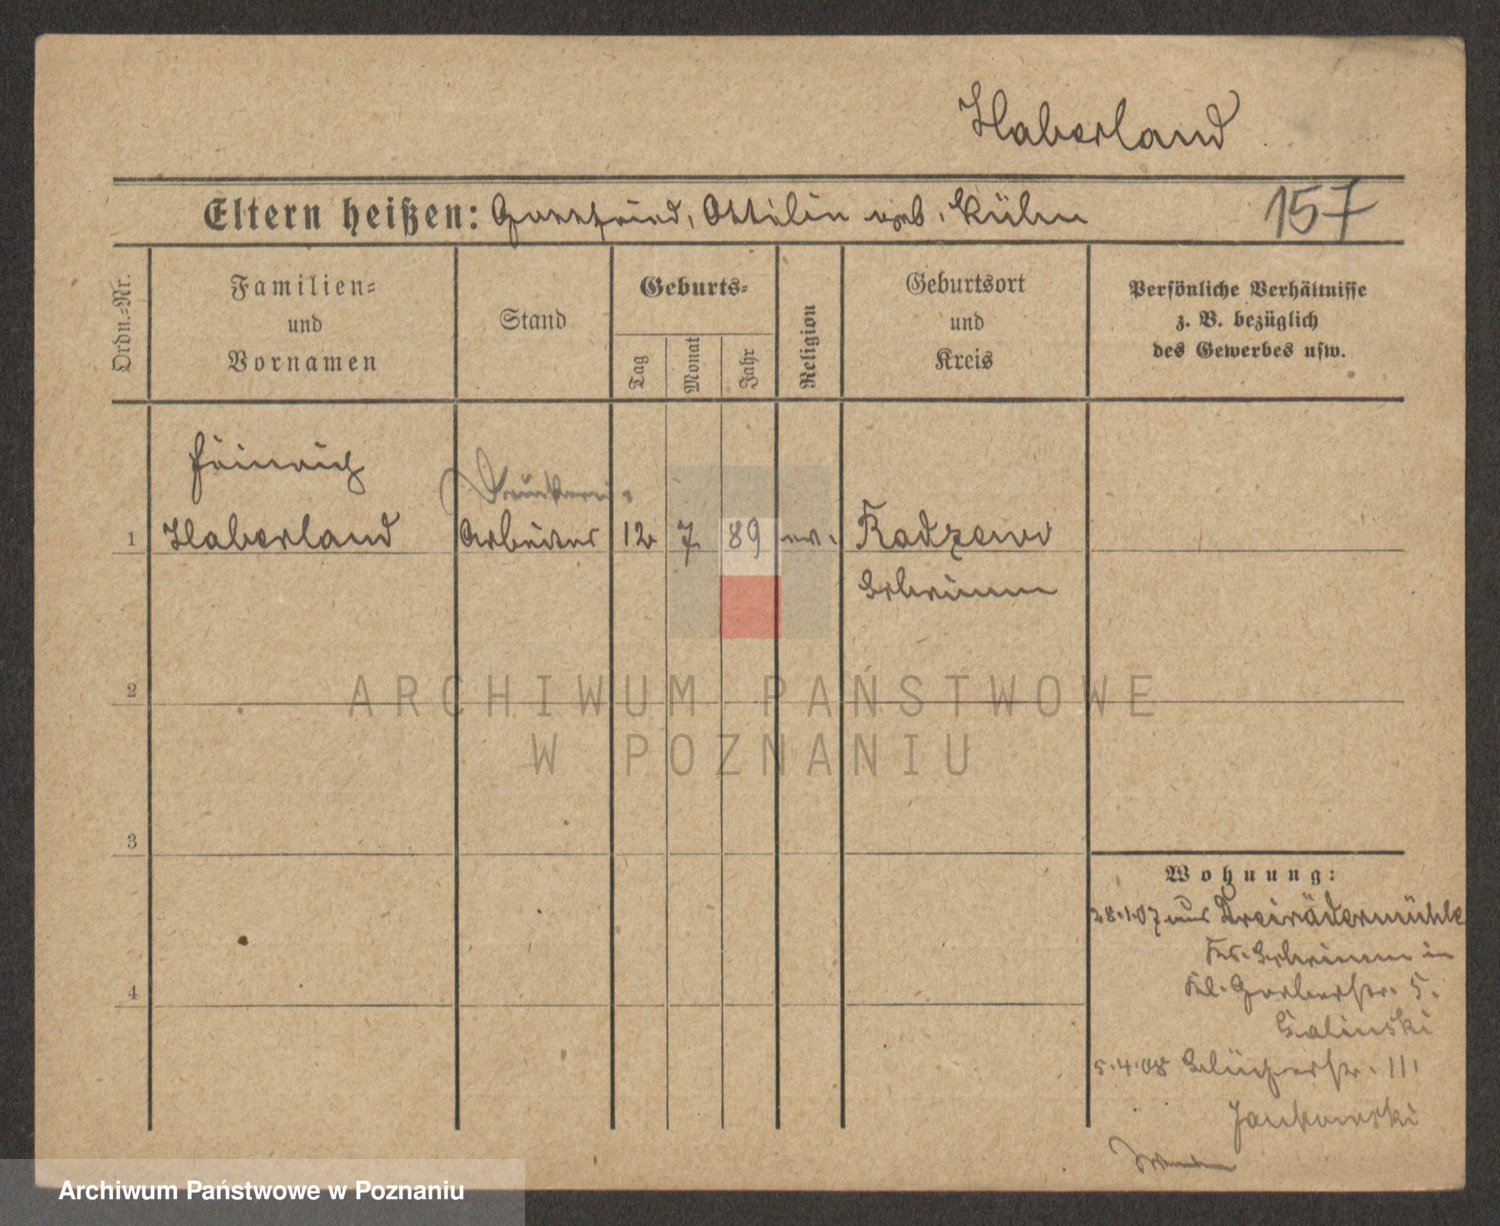 Haberland
Eltern heißen: Gottfried, Ottilie geb. Kühn
157
Ordn.-Nr.
Familien-
und
Vornamen
Stand
Geburts-
Tag
Monat
Jahr
Religion
Geburtsort
und
Kreis
Persönliche Verhältnisse
z. B. bezüglich
des Gewerbes usw.
Heinrich
Druckerei-
1 Haberland Arbeiter 12 7 89 ev. Radzewo
Schrimm
2
3
4
Wohnung:
28.1.07 aus Dreirädermühle
Krs. Schrimm in
Kl. Gerberstr. 5.
Galinski
5.4.08 Blücherstr. III
Jankowski
Wenden
ARCHIWUM PAŃSTWOWE
W POZNANIU
Archiwum Państwowe w Poznaniu